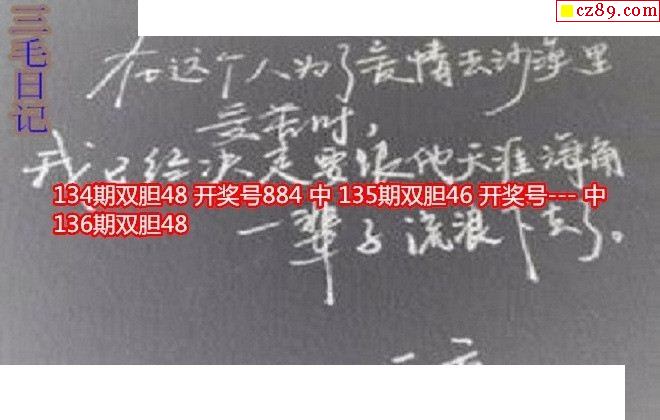 cz89.com
三毛日记
在这个人为了爱情去沙漠里
受苦时,
我已经决定要跟他天涯海角
134期双胆48 开奖号884 中 135期双胆46 开奖号--- 中
136期双胆48
一辈子流浪下去了。